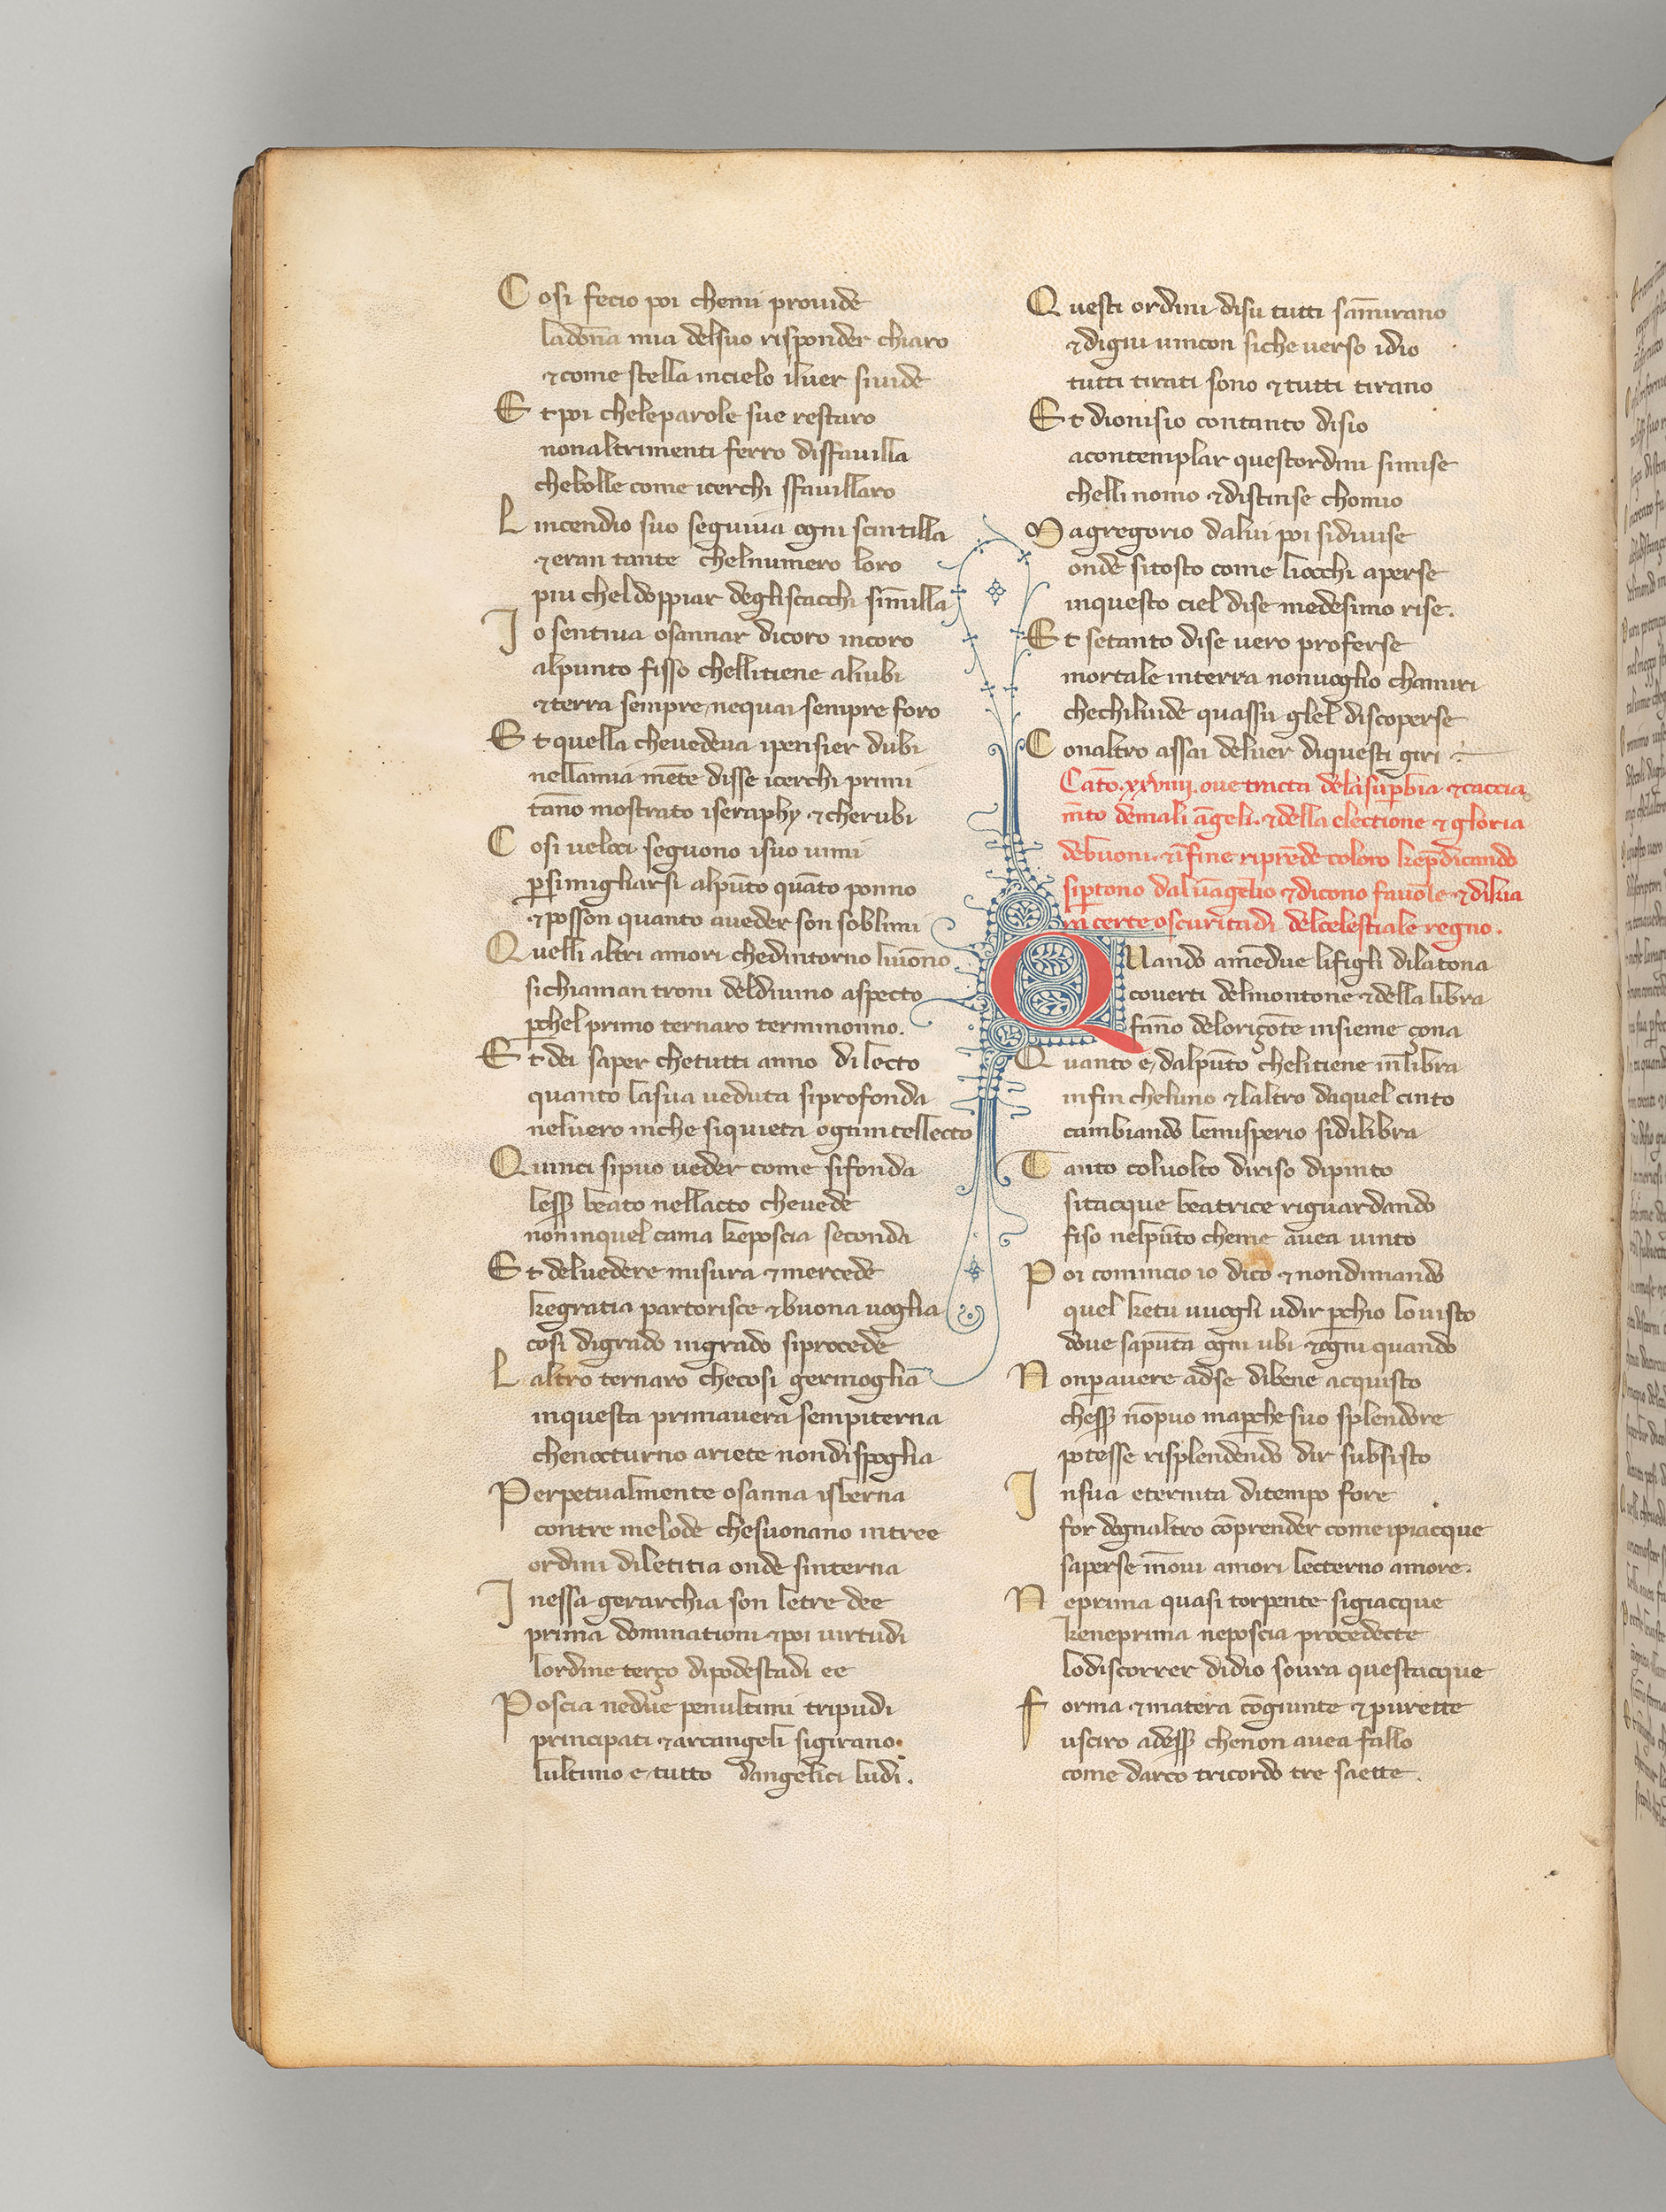 Cosi fecio poi chemi prouide
ladōna mia delsuo risponder chiaro
⁊come stella incielo iluer siuide
Et poi cheleparole sue restaro
nonaltrimenti ferro disfauilla
chebolle come icerchi sfauillaro
Lincendio suo seguiua ogni scintilla
⁊eran tante chelnumero loro
piu cheldoppiar degliscacchi sīmilla
Io sentiua osannar dicoro incoro
alpunto fisso chellitiene aliubi
⁊terra sempre nequai sempre foro
Et quella cheuedeua ipensier dubi
nellamia mēte disse icerchi primi
tāno mostrato iseraphy ⁊cherubi
Cosi ueloci seguono isuo uimi
ꝑsimigliarsi alpūto quāto ponno
⁊posson quanto aueder son soblimi
Quelli altri amori chedintorno liuōno
sichiaman troni deldiuino aspecto
ꝑchel primo ternaro terminonno.
Et dei saper chetutti anno dilecto
quanto lasua ueduta siprofonda
neluero inche siquieta ognintellecto
Quinci sipuo ueder come sifonda
less̄ beato nellacto cheuede
non inquel cama keposcia seconda
Et deluedere misura ⁊mercede
kegratia partorisce ⁊buona uoglia
cosi digrado ingrado siprocede
Laltro ternaro checosi germoglia
inquesta primauera sempiterna
chenocturno ariete nondispoglia
Perpetualmente osanna isberna
contre melode chesuonano intree
ordini diletitia onde sinterna
Inessa gerarchia son letre dee
prima dominationi ⁊poi uirtudi
lordine terço dipodestadi ee
Poscia nedue penultimi tripudi
principati ⁊arcangeli sigirano.
lultimo e tutto dangelici ludi.
Questi ordini disu tutti sāmirano
⁊digiu uincon siche uerso idio
tutti tirati sono ⁊tutti tirano
Et dionisio contanto disio
acontemplar questordini simise
chelli nomo ⁊distinse chomio
Magregorio dalui poi sidiuise
onde sitosto come liocchi aperse
inquesto ciel dise medesimo rise.
Et setanto dise uero proferse
mortale interra nonuoglio chamiri
chechiluide quassu gliel discoperse
Conaltro assai deluer diquesti giri
Cāto. xxviiii. oue tracta dela suꝑbia ⁊caccia
mēto demali āgeli. ⁊della electione ⁊ gloria
debuoni. ⁊īfine riprēde coloro kep̄dicando
siꝑtono daluāgelio ⁊dicono fauole ⁊dilua
in certe oscuritadi delcelestiale regno.
QUando amēdue lifigli dilatona
couerti delmontone ⁊della libra
fāno deloriçōte insieme çona
Quanto e dalpūto chelitiene īlibra
infin cheluno ⁊laltro daquel cinto
cambiando lemisperio sidilibra
Tanto coluolto diriso dipinto
sitacque beatrice riguardando
fiso nelpūto cheme auea uinto
Poi comincio io dico ⁊nondimando
quel ketu uuogli udir ꝑchio louisto
doue sapūta ogni ubi ⁊ogni quando
Nonꝑauere adse dibene acquisto
chess̄ nōpuo maꝑche suo splendore
potesse risplendendo dir subsisto
Insua eternita ditempo fore
for dognaltro cōprender come ipiacque
saperse īnoui amori lecterno amore.
Neprima quasi torpente sigiacque
keneprima neposcia procedecte
lodiscorrer didio soura questacque
Forma ⁊matera cōgiunte ⁊purette
usciro adess̄ chenon auea fallo
come darco tricordo tre saette.